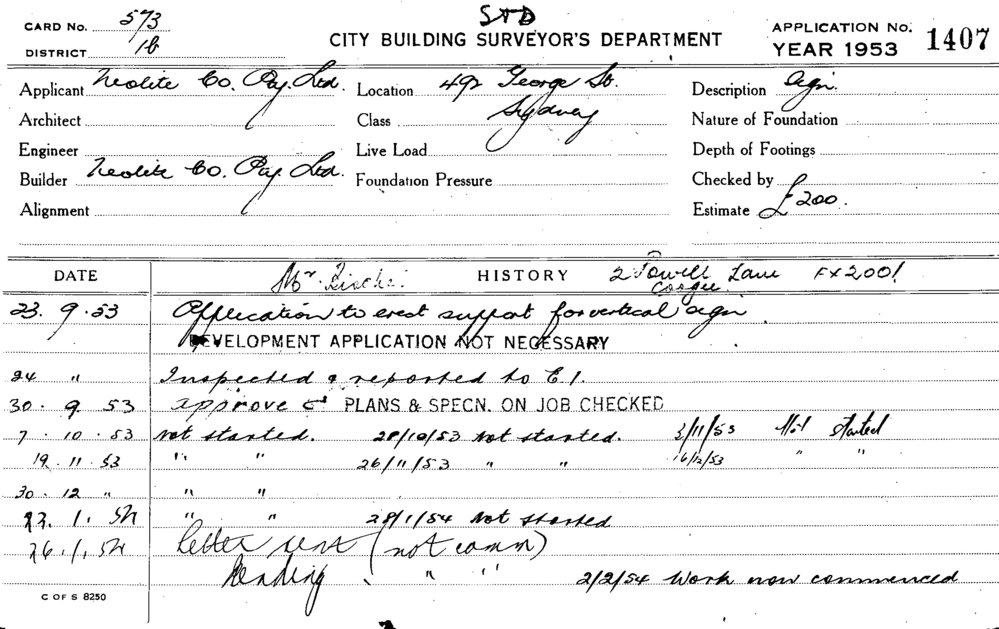 CARD No. 573 STD APPLICATION No. 1407
DISTRICT 1b CITY BUILDING SURVEYOR'S DEPARTMENT YEAR 1953
Applicant Neolite Co. Pty. Ltd. Location 492 George St. Description sign.
Architect Class Sydney Nature of Foundation
Engineer Live Load Depth of Footings
Builder Neolite Co. Pty. Ltd. Foundation Pressure Checked by
Alignment Estimate £200.
DATE Mr. HISTORY 2 Powell Lane FX2001
Coogee
23. 9. 53 Application to erect support for vertical sign
DEVELOPMENT APPLICATION NOT NECESSARY
24 " Inspected & reported to E.I.
30. 9. 53 approve PLANS & SPECN. ON JOB CHECKED
7. 10. 53 Not started. 28/10/53 Not started. 3/11/53 Not started
19. 11. 53 " " 26/11/53 " " 16/12/53 " "
30. 12 " " "
22. 1. 54 " " 28/1/54 Not started
26. 1. 54 letter sent (not comm)
Pending " " 2/2/54 Work now commenced
C OF S 8250